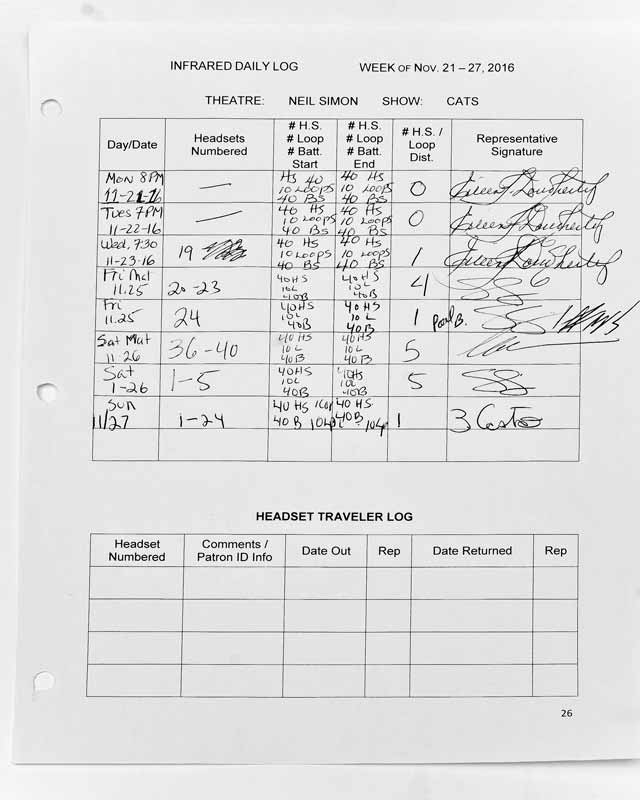 INFRARED DAILY LOG WEEK OF NOV. 21 – 27, 2016
THEATRE: NEIL SIMON SHOW: CATS
Day/Date
Headsets
Numbered
# H.S.
# Loop
# Batt.
Start
# H.S.
# Loop
# Batt.
End
# H.S. /
Loop
Dist.
Representative
Signature
MON 8PM
11-21-16
—
HS 40
10 LOOPS
40 BS
40 HS
10 LOOPS
40 BS
0
Eileen F. Dougherty
TUES 7PM
11-22-16
—
40 HS
10 LOOPS
40 BS
40 HS
10 LOOPS
40 BS
0
Eileen F. Dougherty
Wed, 7:30
11-23-16
19
40 HS
10 LOOPS
40 BS
40 HS
10 LOOPS
40 BS
1
Eileen F. Dougherty
Fri Mat
11.25
20-23
40HS
10L
40B
40HS
10L
40B
4
Fri
11.25
24
40HS
10L
40B
40HS
10L
40B
1
Paul B.
Sat Mat
11 26
36-40
40HS
10L
40B
40HS
10L
40B
5
Sat
1-26
1-5
40HS
10L
40B
40HS
10L
40B
5
Sun
11/27
1-24
40 HS
40 B
40 HS
40B
1
HEADSET TRAVELER LOG
Headset
Numbered
Comments /
Patron ID Info
Date Out
Rep
Date Returned
Rep
26